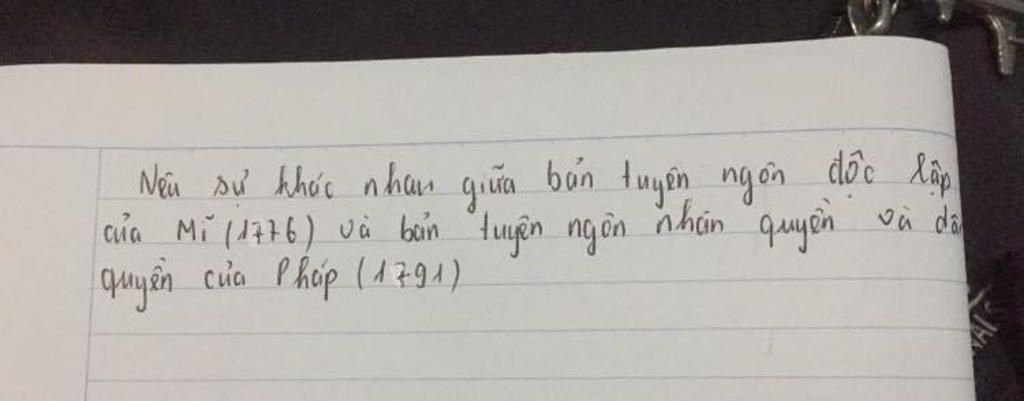 Nêu sự khác nhau giữa bản tuyên ngôn độc lập
của Mĩ (1776) và bản tuyên ngôn nhân quyền và dân
quyền của Pháp (1791)